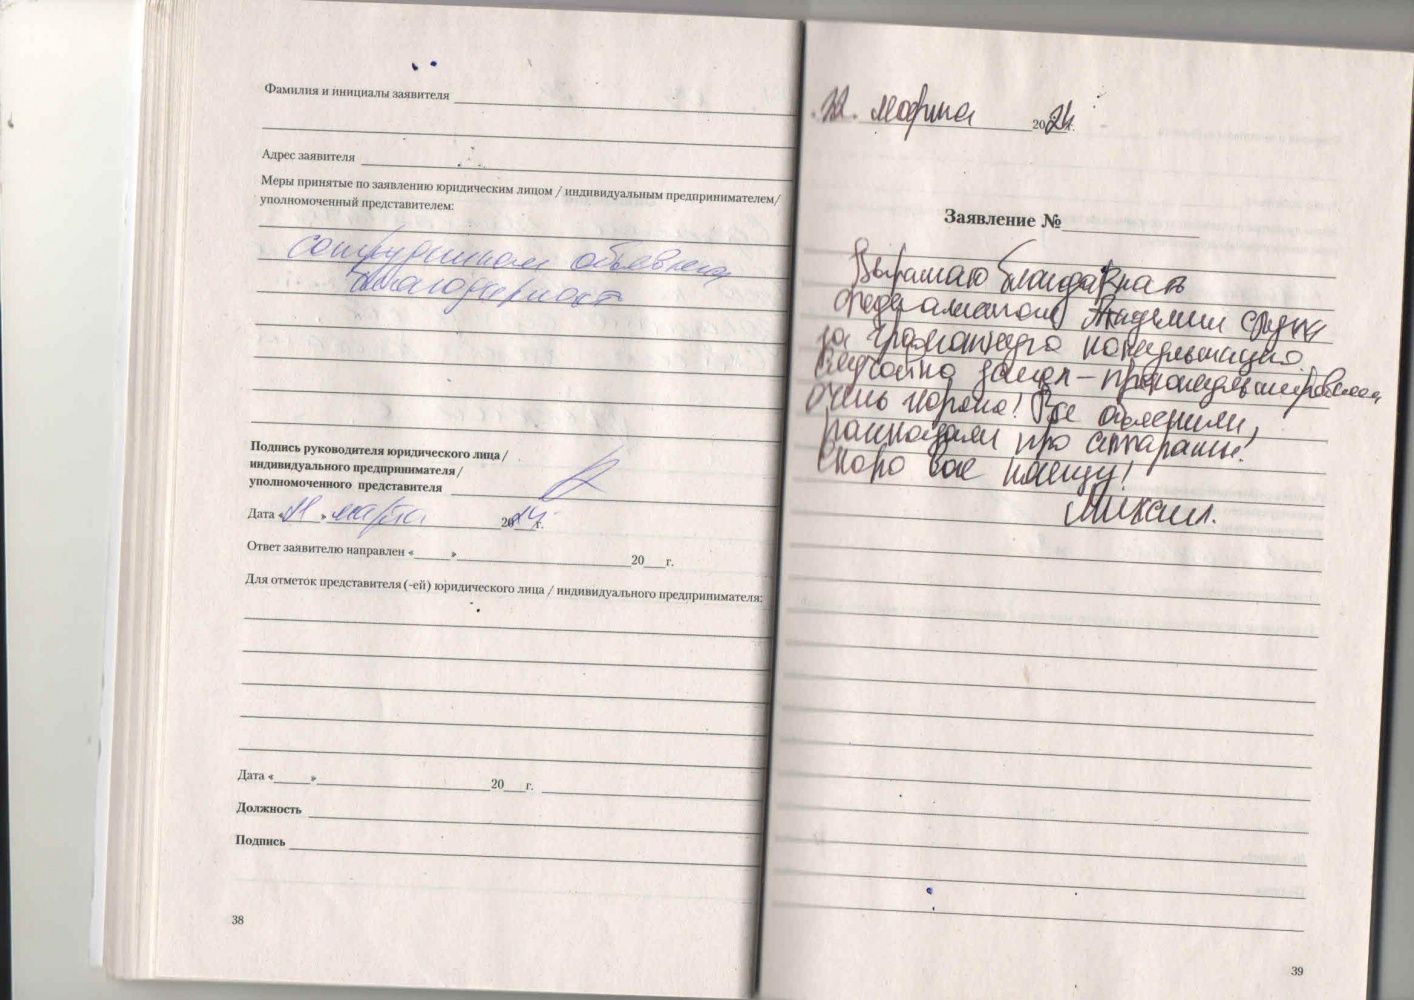 Фамилия и инициалы заявителя
Адрес заявителя
Меры принятые по заявлению юридическим лицом / индивидуальным предпринимателем/
уполномоченный представителем:
сотрудникам объявлена
благодарность
Подпись руководителя юридического лица /
индивидуального предпринимателя /
уполномоченного представителя
Дата « » марта 20 г.
Ответ заявителю направлен « » 20 г.
Для отметок представителя (-ей) юридического лица / индивидуального предпринимателя:
Дата « » 20 г.
Должность
Подпись
38
22. марта 2024 г.
Заявление №
Выражаю благодарность
специалистам Академии слуха
за грамотную консультацию.
Случайно зашел – проконсультировали
очень хорошо! Все объяснили,
рассказали про аппараты!
Скоро вас посещу!
Михаил.
39